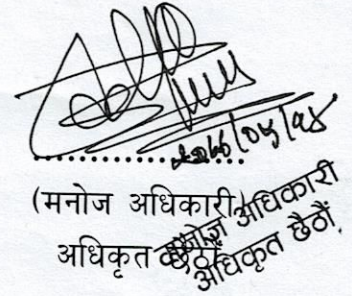 (मनोज अधिकारी)
अधिकृत छैठौं
मनोज अधिकारी
अधिकृत छैठौं